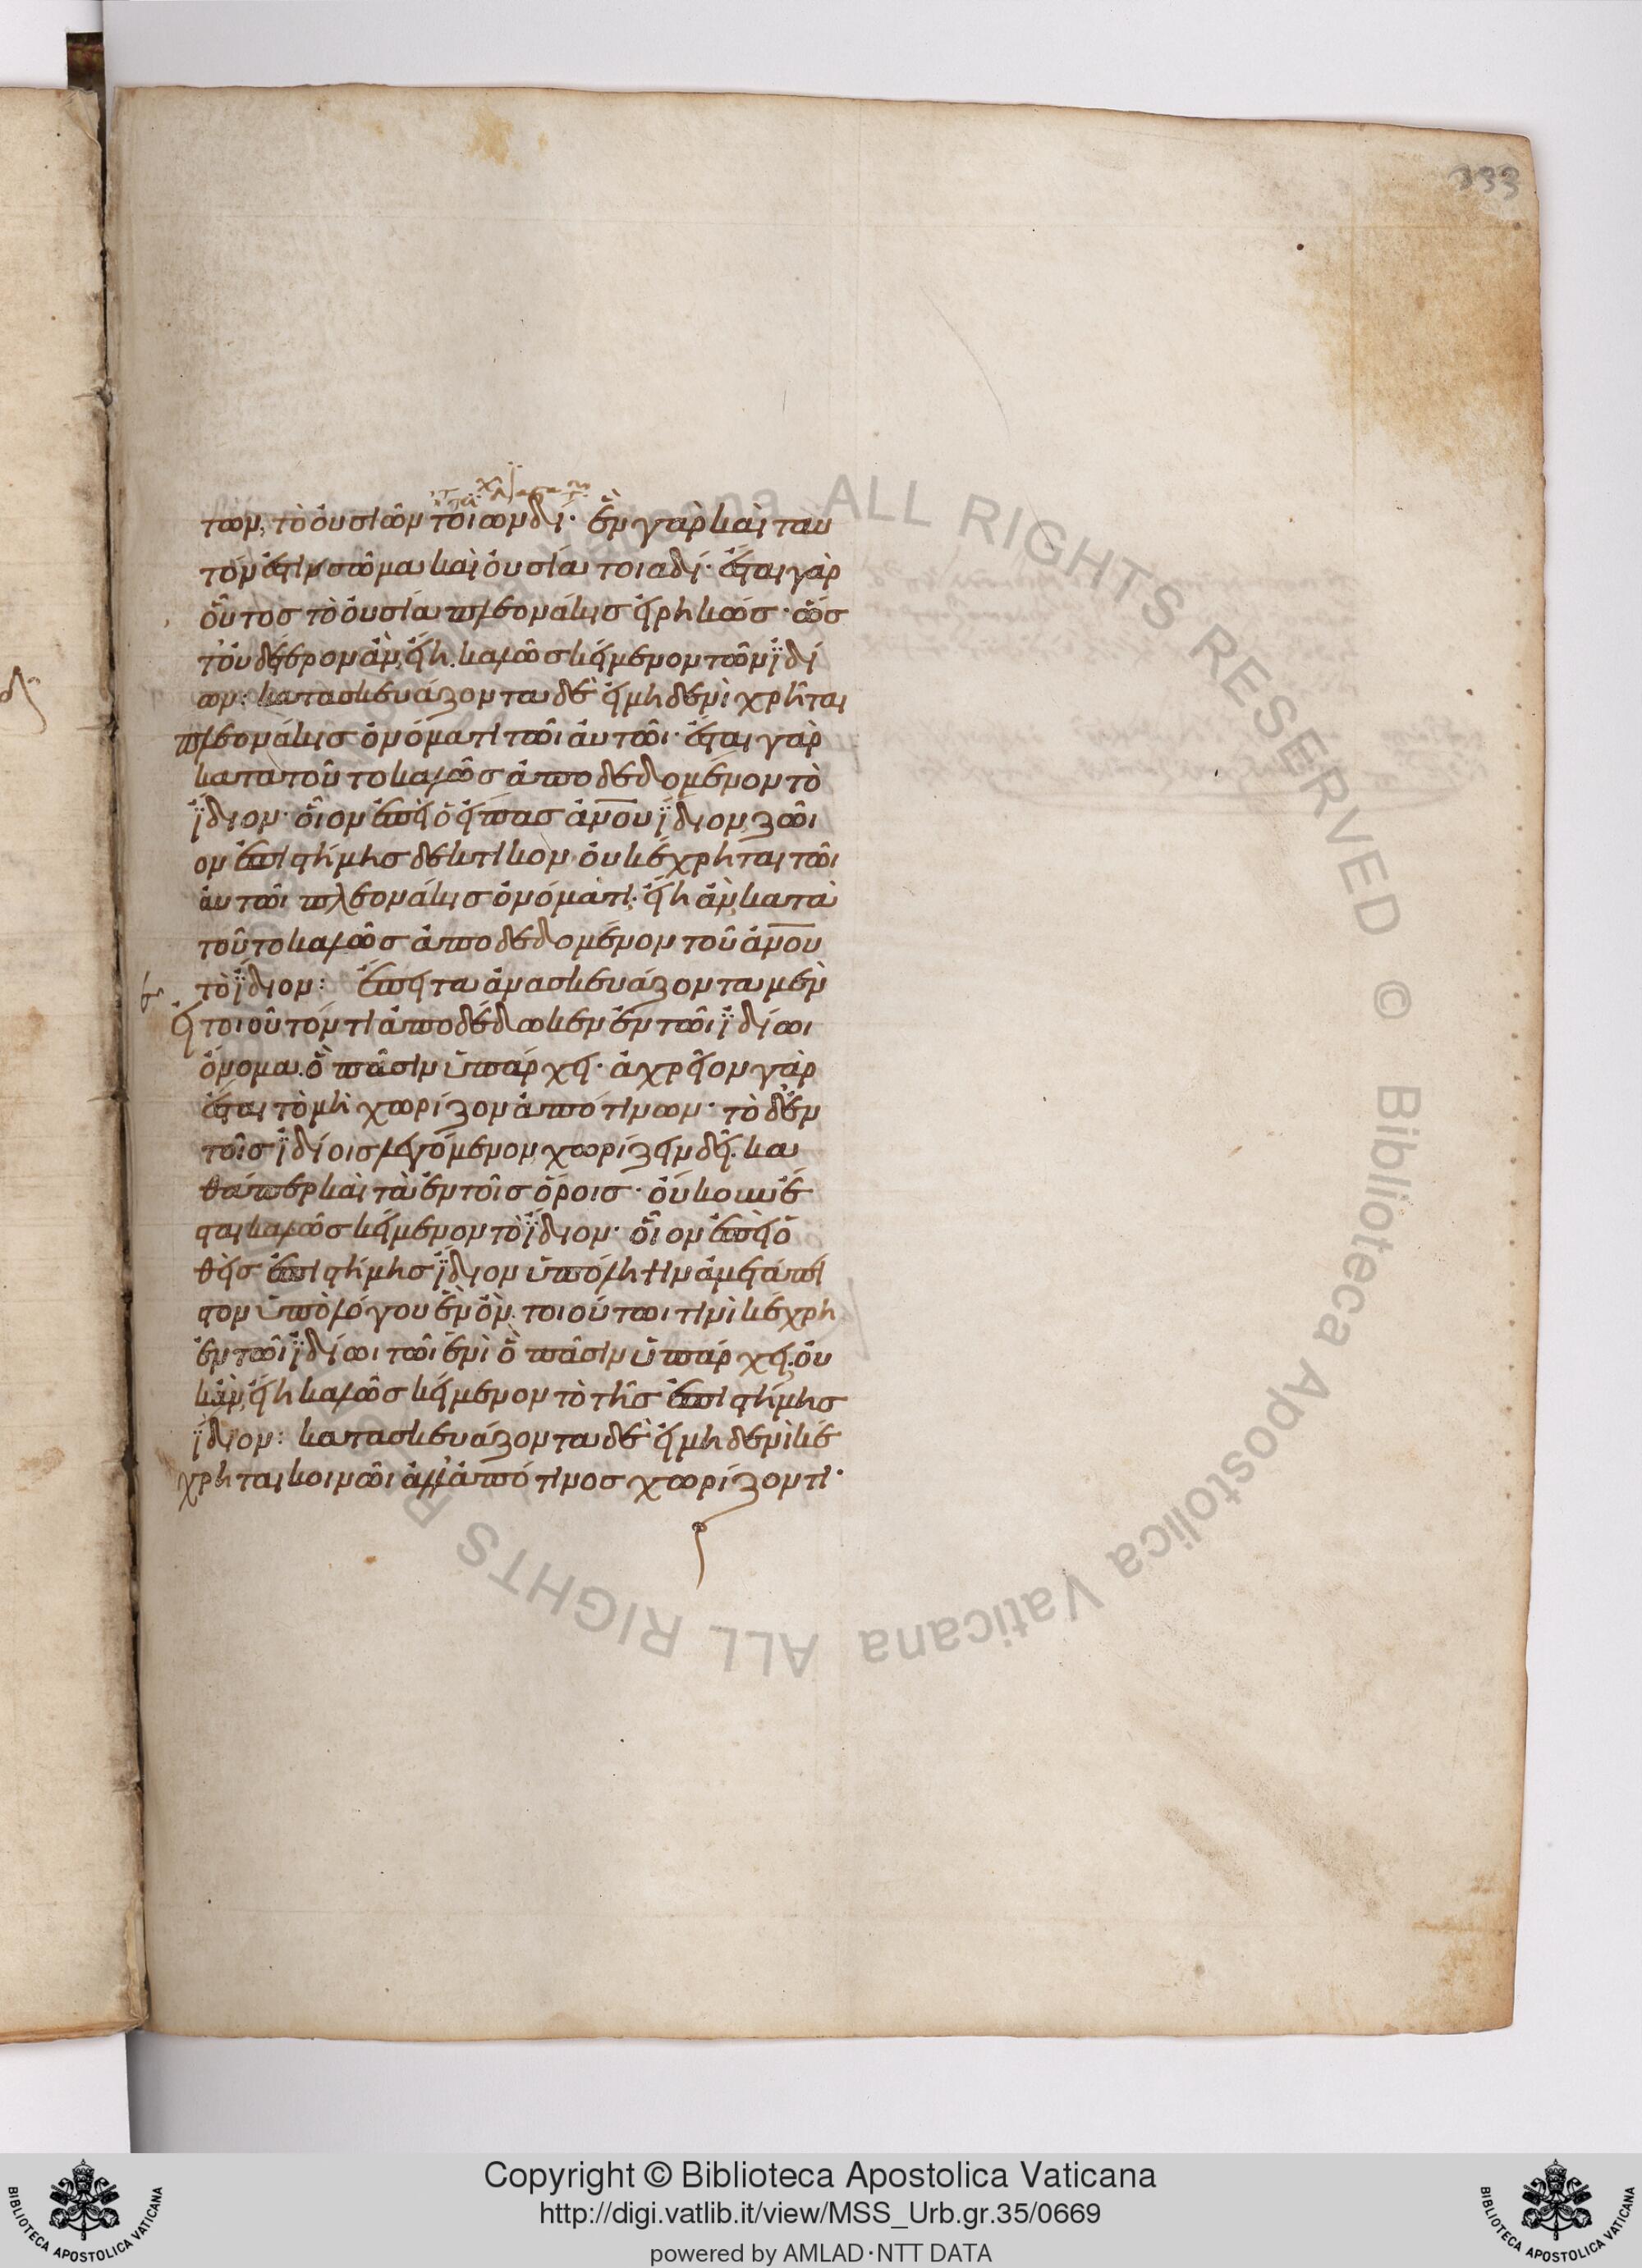 333
των, τὸ οὐσιῶν τοιωνδί· ἓν γὰρ καὶ ταυ
τόν ἐστιν σῶμα καὶ οὐσία τοιαδί· ἔσται γὰρ
οὗτος τὸ οὐσία πλεονάκις εἰρηκώς· ὥστ᾽
οὐδέτερον ἂν, εἴη καλῶς κείμενον τῶν ἰδί
ων: κατασκευάζοντα δὲ εἰ μηδενὶ χρῆται
πλεονάκις ὀνόματι τῶι αὐτῶι· ἔσται γὰρ
κατὰ τοῦτο καλῶς ἀποδεδομένον τὸ
ἴδιον· οἷον ἐπεὶ ὁ εἴπας ἀνου ἴδιον, ζῶι
ον ἐπιστήμης δεκτικον οὐ κέχρηται τῶι
αὐτῶι πλεονάκις ὀνόματι· εἴη ἂν, κατὰ
τοῦτο καλῶς ἀποδεδομένον τοῦ ἀνου
τὸ ἴδιον: ἔπειτα ἀνασκευάζοντα μὲν
εἰ τοιοῦτόν τι ἀποδέδωκεν ἐν τῶι ἰδίωι
ὄνομα. ὃ πᾶσιν ὑπάρχει· ἀχρεῖον γὰρ
ἔσται τὸ μὴ χωρίζον ἀπό τινων· τὸ δ᾽ ἐν
τοῖς ἰδίοις λεγόμενον, χωρίζειν δεῖ. κα
θάπερ καὶ τὰ ἐν τοῖς ὅροις· οὔκουν ἔ
σται καλῶς κείμενον τὸ ἴδιον· οἷον ἐπεὶ ὁ
θεὶς ἐπιστήμης ἴδιον ὑπόληψιν ἀμετάπει
στον ὑπὸ λόγου ἓν ὂν. τοιούτωι τινὶ κέχρη
ἐν τῶι ἰδίωι τῶι ἑνὶ ὃ πᾶσιν ὑπάρχει, οὐ
κ ἂν, εἴη καλῶς κείμενον τὸ τῆς ἐπιστήμης
ἴδιον: κατασκευάζοντα δὲ εἰ μηδενὶ κέ
χρηται κοινῶι ἀλλ᾽ ἀπό τινος χωρίζοντι·
Copyright © Biblioteca Apostolica Vaticana
http://digi.vatlib.it/view/MSS_Urb.gr.35/0669
powered by AMLAD·NTT DATA
BIBLIOTECA APOSTOLICA VATICANA
BIBLIOTECA APOSTOLICA VATICANA
ALL RIGHTS RESERVED © Biblioteca Apostolica Vaticana ALL RIGHTS